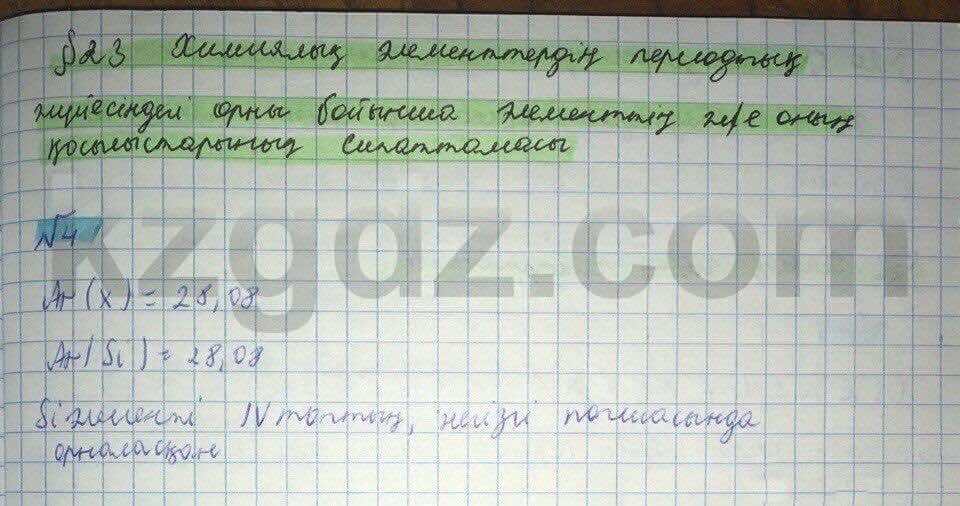 §23 Химиялық элементтердің периодтық
жүйесіндегі орны бойынша элементтің ж/е оның
қосылыстарының сипаттамасы
№4
Ar(x) = 28,08
Ar(Si) = 28,08
Si элементі IV топтың, негізгі топшасында
орналасқан
kzgdz.com